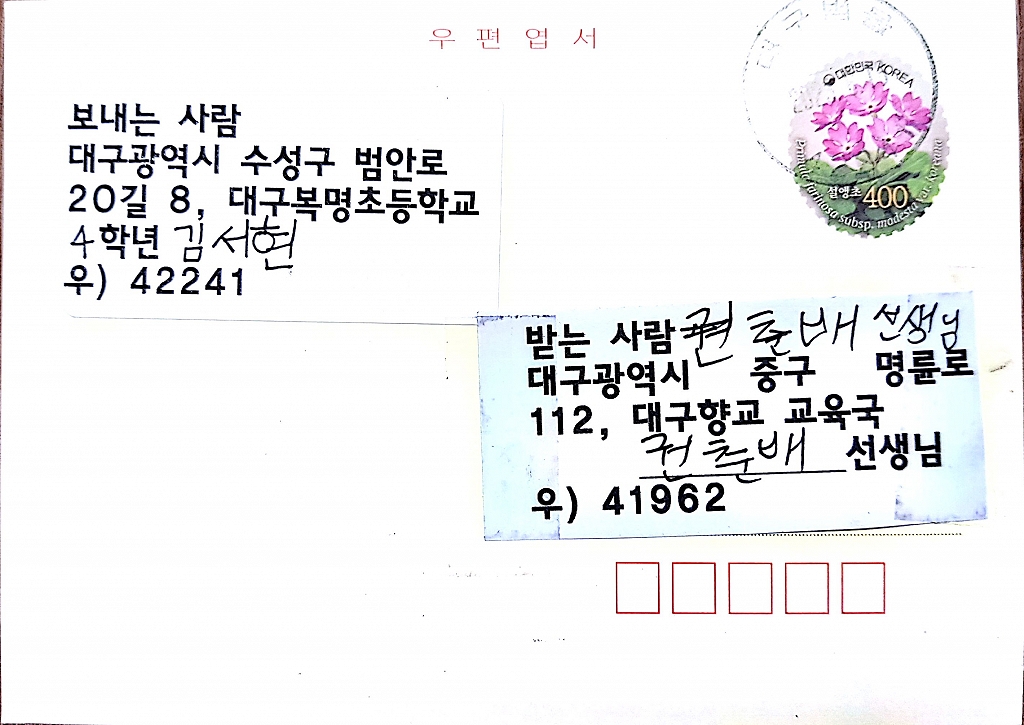 우편엽서
대구
대한민국 KOREA
설앵초 400
Primula farinosa subsp. modesta var. koreana
보내는 사람
대구광역시 수성구 범안로
20길 8, 대구복명초등학교
4학년 김서현
우) 42241
받는 사람 권춘배 선생님
대구광역시 중구 명륜로
112, 대구향교 교육국
권춘배 선생님
우) 41962